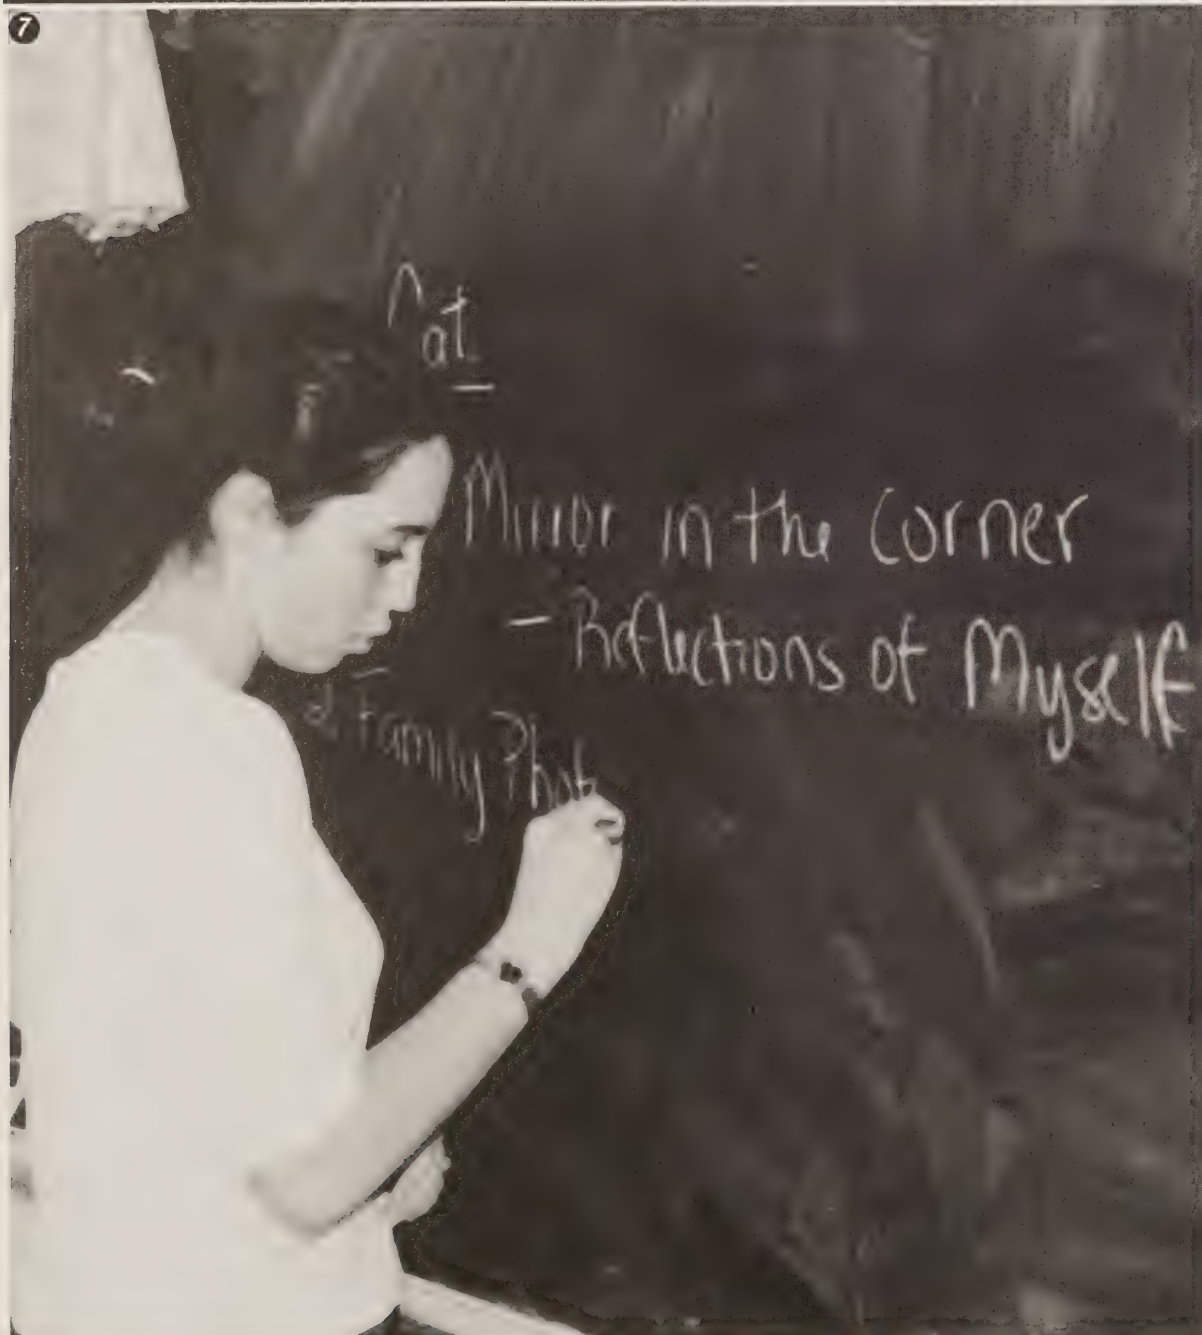 7
Cat
Mirror in the Corner
– Reflections of Myself
Family Phot